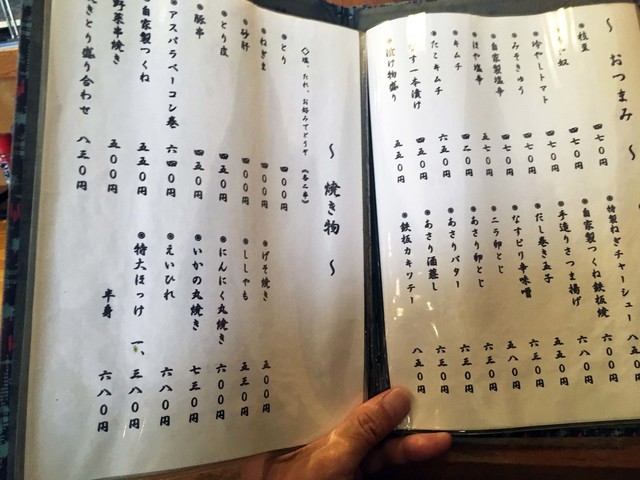 ～ おつまみ ～
◉枝豆 四七〇円
奴 四七〇円
◉冷やしトマト 四七〇円
◉みそきゅう 四七〇円
◉自家製塩辛 四七〇円
◉ほや塩辛 五七〇円
◉キムチ 四二〇円
◉たこキムチ 六五〇円
なす一本漬け 四五〇円
◉漬け物盛り 五五〇円
◉特製ねぎチャーシュー 八五〇円
◉自家製つくね鉄板焼 六〇〇円
◉手造りさつま揚げ 六〇〇円
◉だし巻き玉子 五五〇円
◉なすピリ辛味噌 六三〇円
◉ニラ卵とじ 五八〇円
◉あさり卵とじ 六三〇円
◉あさりバター 六三〇円
◉あさり酒蒸し 六三〇円
◉鉄板カキソテー 八五〇円
～ 焼き物 ～
◇塩、たれ、お好みでどうぞ (各二本)
◉とり 四〇〇円
◉ねぎま 四〇〇円
◉砂肝 四〇〇円
◉とり皮 四五〇円
◉豚串 四五〇円
◉アスパラベーコン巻 六四〇円
◉自家製つくね 五五〇円
野菜串焼き 五〇〇円
きとり盛り合わせ 八三〇円
◉げそ焼き 五〇〇円
◉ししゃも 五三〇円
◉にんにく丸焼き 六〇〇円
◉いかの丸焼き 七三〇円
◉えいひれ 六八〇円
◉特大ほっけ 一、三八〇円
半身 六八〇円